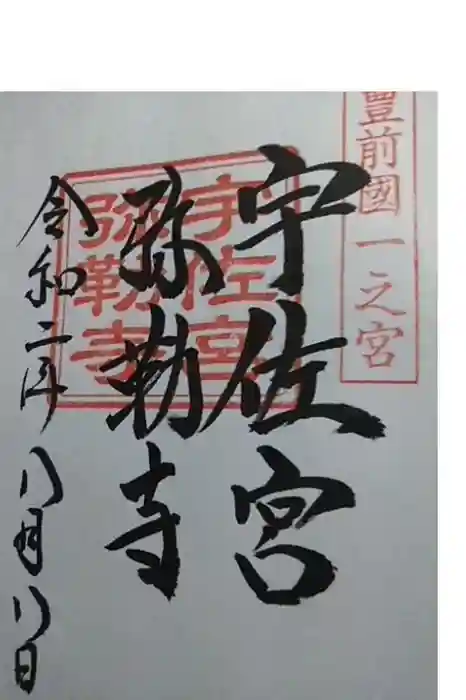 豊前國一之宮
宇佐宮
彌勒寺
宇佐宮
弥勒寺
令和二年八月八日